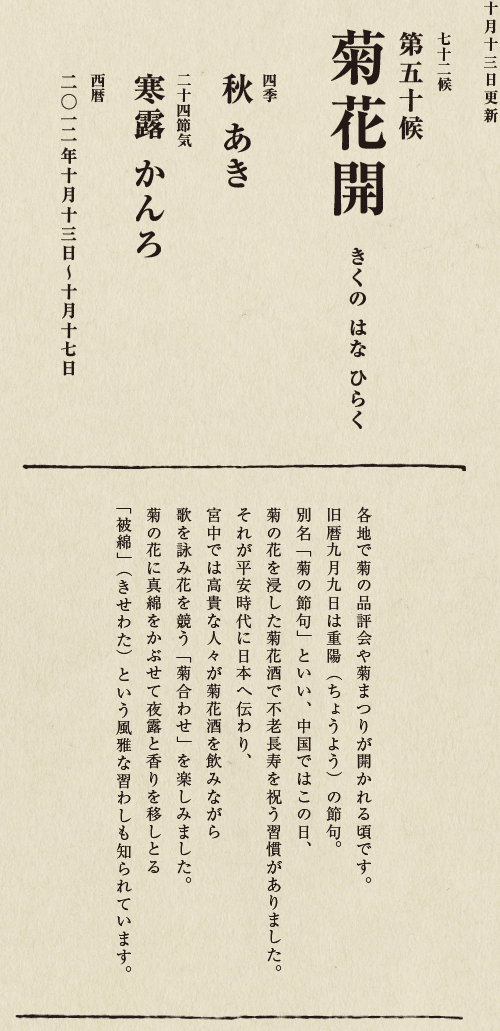 十月十三日更新
七十二候
第五十候
菊花開 きくの はな ひらく
四季
秋 あき
二十四節気
寒露 かんろ
西暦
二〇一二年十月十三日〜十月十七日
各地で菊の品評会や菊まつりが開かれる頃です。
旧暦九月九日は重陽（ちょうよう）の節句。
別名「菊の節句」といい、中国ではこの日、
菊の花を浸した菊花酒で不老長寿を祝う習慣がありました。
それが平安時代に日本へ伝わり、
宮中では高貴な人々が菊花酒を飲みながら
歌を詠み花を競う「菊合わせ」を楽しみました。
菊の花に真綿をかぶせて夜露と香りを移しとる
「被綿」（きせわた）という風雅な習わしも知られています。